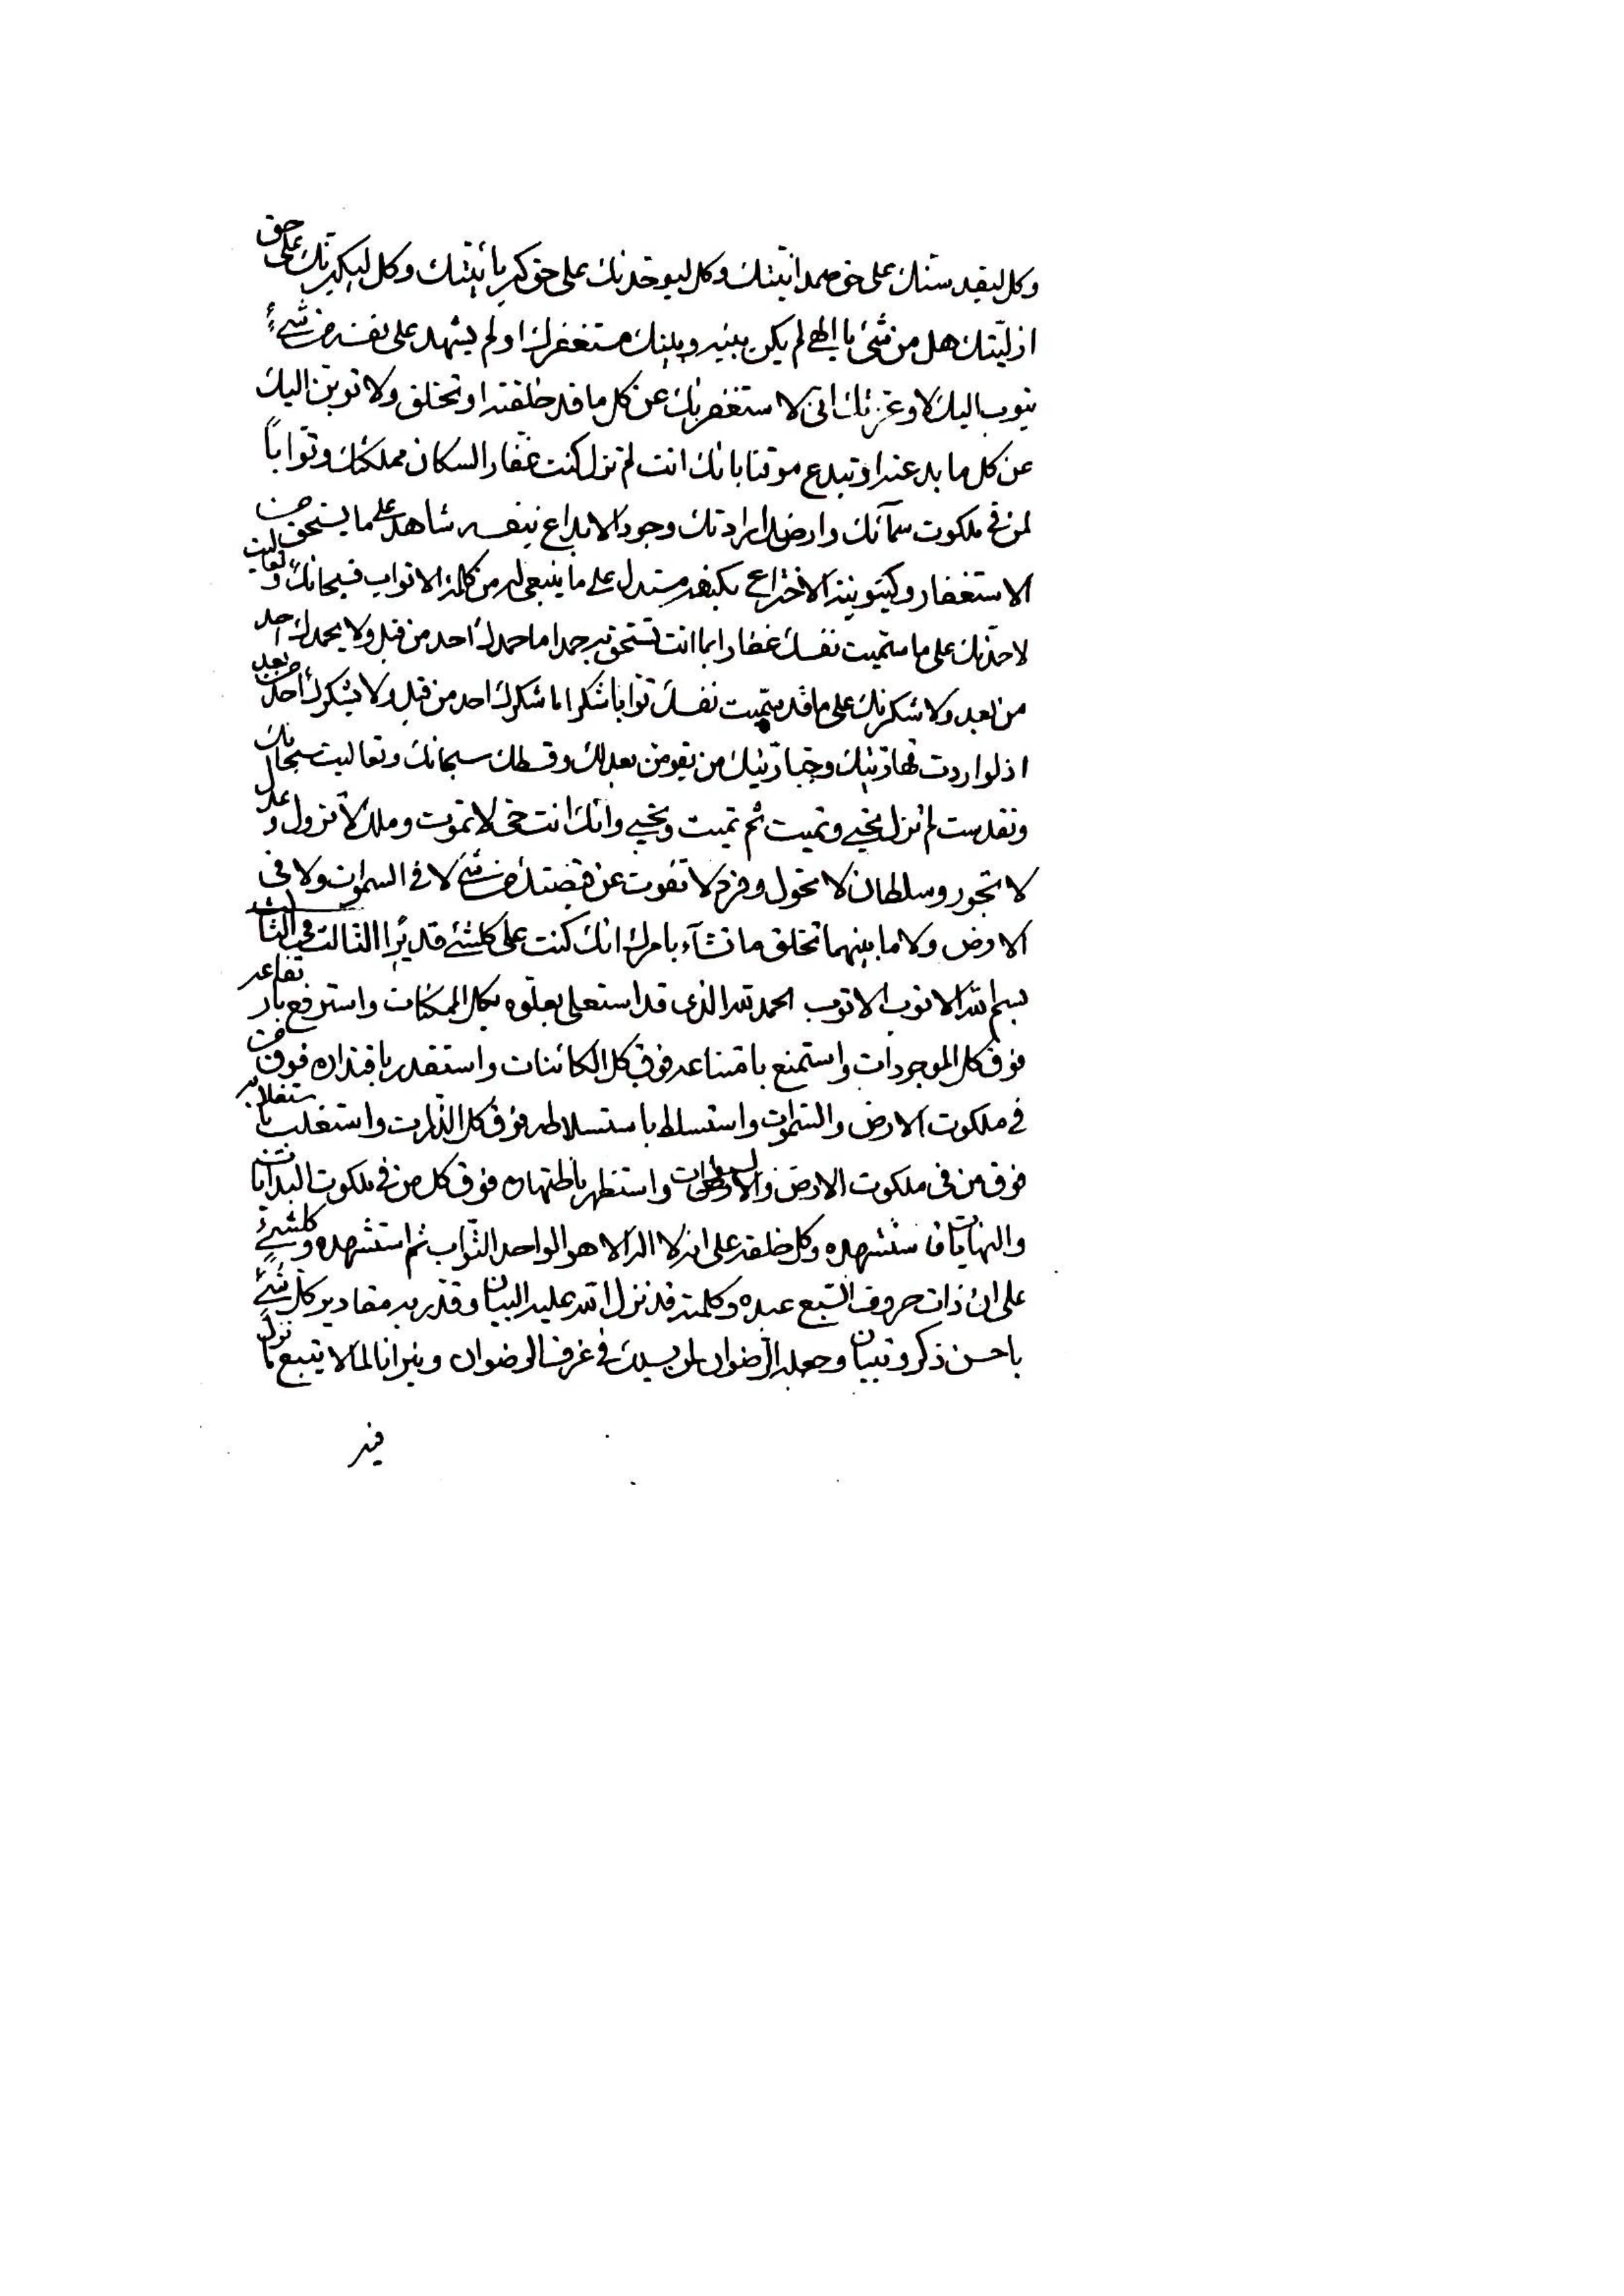 وكل ليقدسنك على حق صمدانيتك وكل ليوحدنك على حق كبريائيتك وكل ليكبرنك على حق
ازليتك هل من شئ يا الهي لم يكن بينه وبينك مستغفرك او لم يشهد على نفسه من شئ
يتوب اليك لا وعزتك انى لاستغفرنك عن كل ما قد خلقته او تخلق ولا توبن اليك
عن كل ما بدعته او تبدع موقنا بانك انت لم تزل كنت غفارا لسكان مملكتك وتوابا
لمن فى ملكوت سمآئك وارضك اردتك وجود الابداع بنفسه شاهد على ما يستحق من
الاستغفار وكينونية الاختراع بكنهه مستدل على ما ينبغى له من كلمة الاتواب فسبحانك وتعاليت
لاحمدنك على ما سميت نفسك غفارا بما انت تستحق به حمدا ما حمدك احد من قبل ولا يحمدك احد
من بعد ولاشكرنك على ما قد سميت نفسك توابا شكرا ما شكرك احد من قبل ولا يشكرك احد من بعد
اذ لو اردت قهاريتك وجباريتك من يقومن بعدلك وقسطك سبحانك وتعاليت سبحانك
وتقدست لم تزل تحيي وتميت ثم تميت وتحيي وانك انت حى لا تموت وملك لا تزول وعدل
لا تجور وسلطان لا تحول وفرد لا تفوت عن قبضتك من شئ لا فى السموات ولا فى
الارض ولا ما بينهما تخلق ما تشآء بامرك انك كنت على كلشئ قديرا الثالث فى الثالث
بسم الله الاتوب الاتوب الحمد لله الذى قد استعلى بعلوه كل الممكنات واسترفع بارتفاعه
فوق كل الموجودات واستمنع بامتناعه فوق كل الكائنات واستقدر باقتداره فوق من
فى ملكوت الارض والسموات واستسلط باستسلاطه فوق كل الذرات واستغلب باستغلابه
فوق من فى ملكوت الارض والسموات واستظهر باظتهاره فوق كل من فى ملكوت البدايات
والنهايات فاستشهده وكل خلقه على انه لا اله الا هو الواحد التواب ثم استشهده وكلشئ
على ان ذات حروف السبع عبده وكلمته قد نزل الله عليه البيان وقدر به مقادير كل شئ
باحسن ذكر وتبيان وجعله الرضوان لمن يسكن فى غرف الرضوان ونيرانا لما لا يتبع ما نزل
فيه